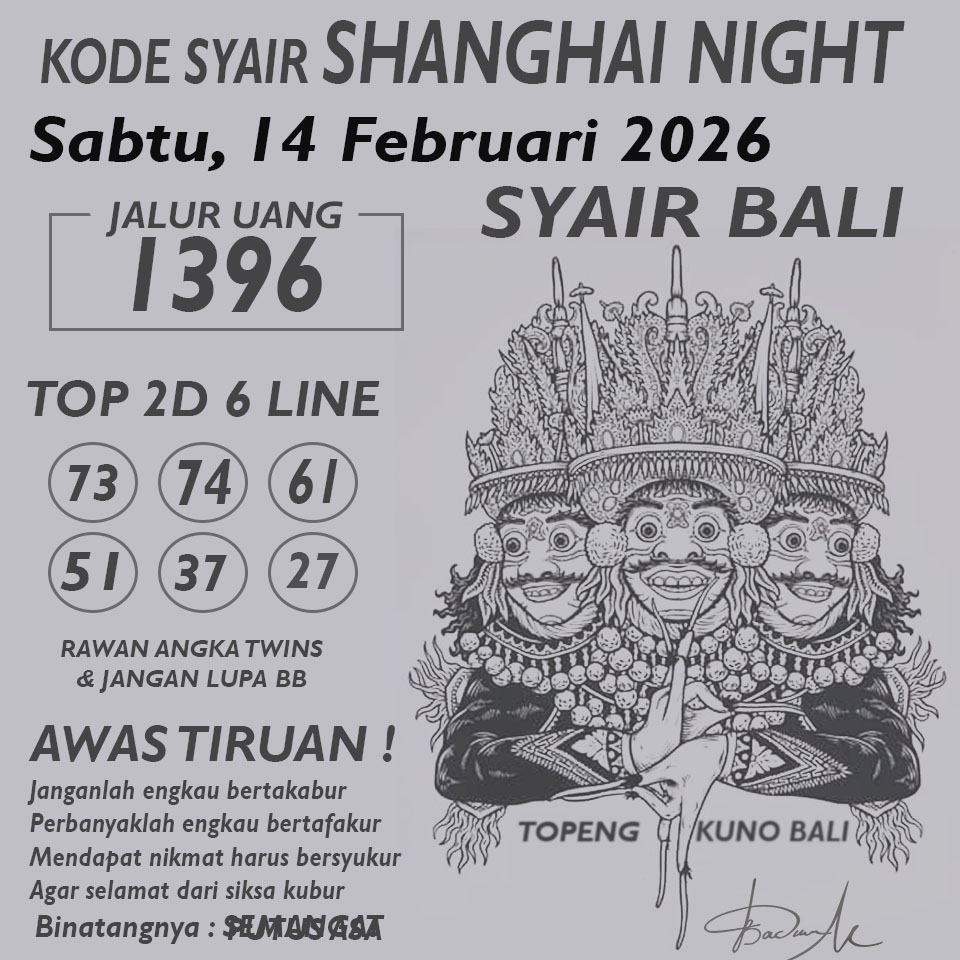 KODE SYAIR SHANGHAI NIGHT
Sabtu, 14 Februari 2026
SYAIR BALI
JALUR UANG
1396
TOP 2D 6 LINE
73 74 61
51 37 27
RAWAN ANGKA TWINS
& JANGAN LUPA BB
AWAS TIRUAN !
Janganlah engkau bertakabur
Perbanyaklah engkau bertafakur
Mendapat nikmat harus bersyukur
Agar selamat dari siksa kubur
Binatangnya :
TOPENG KUNO BALI